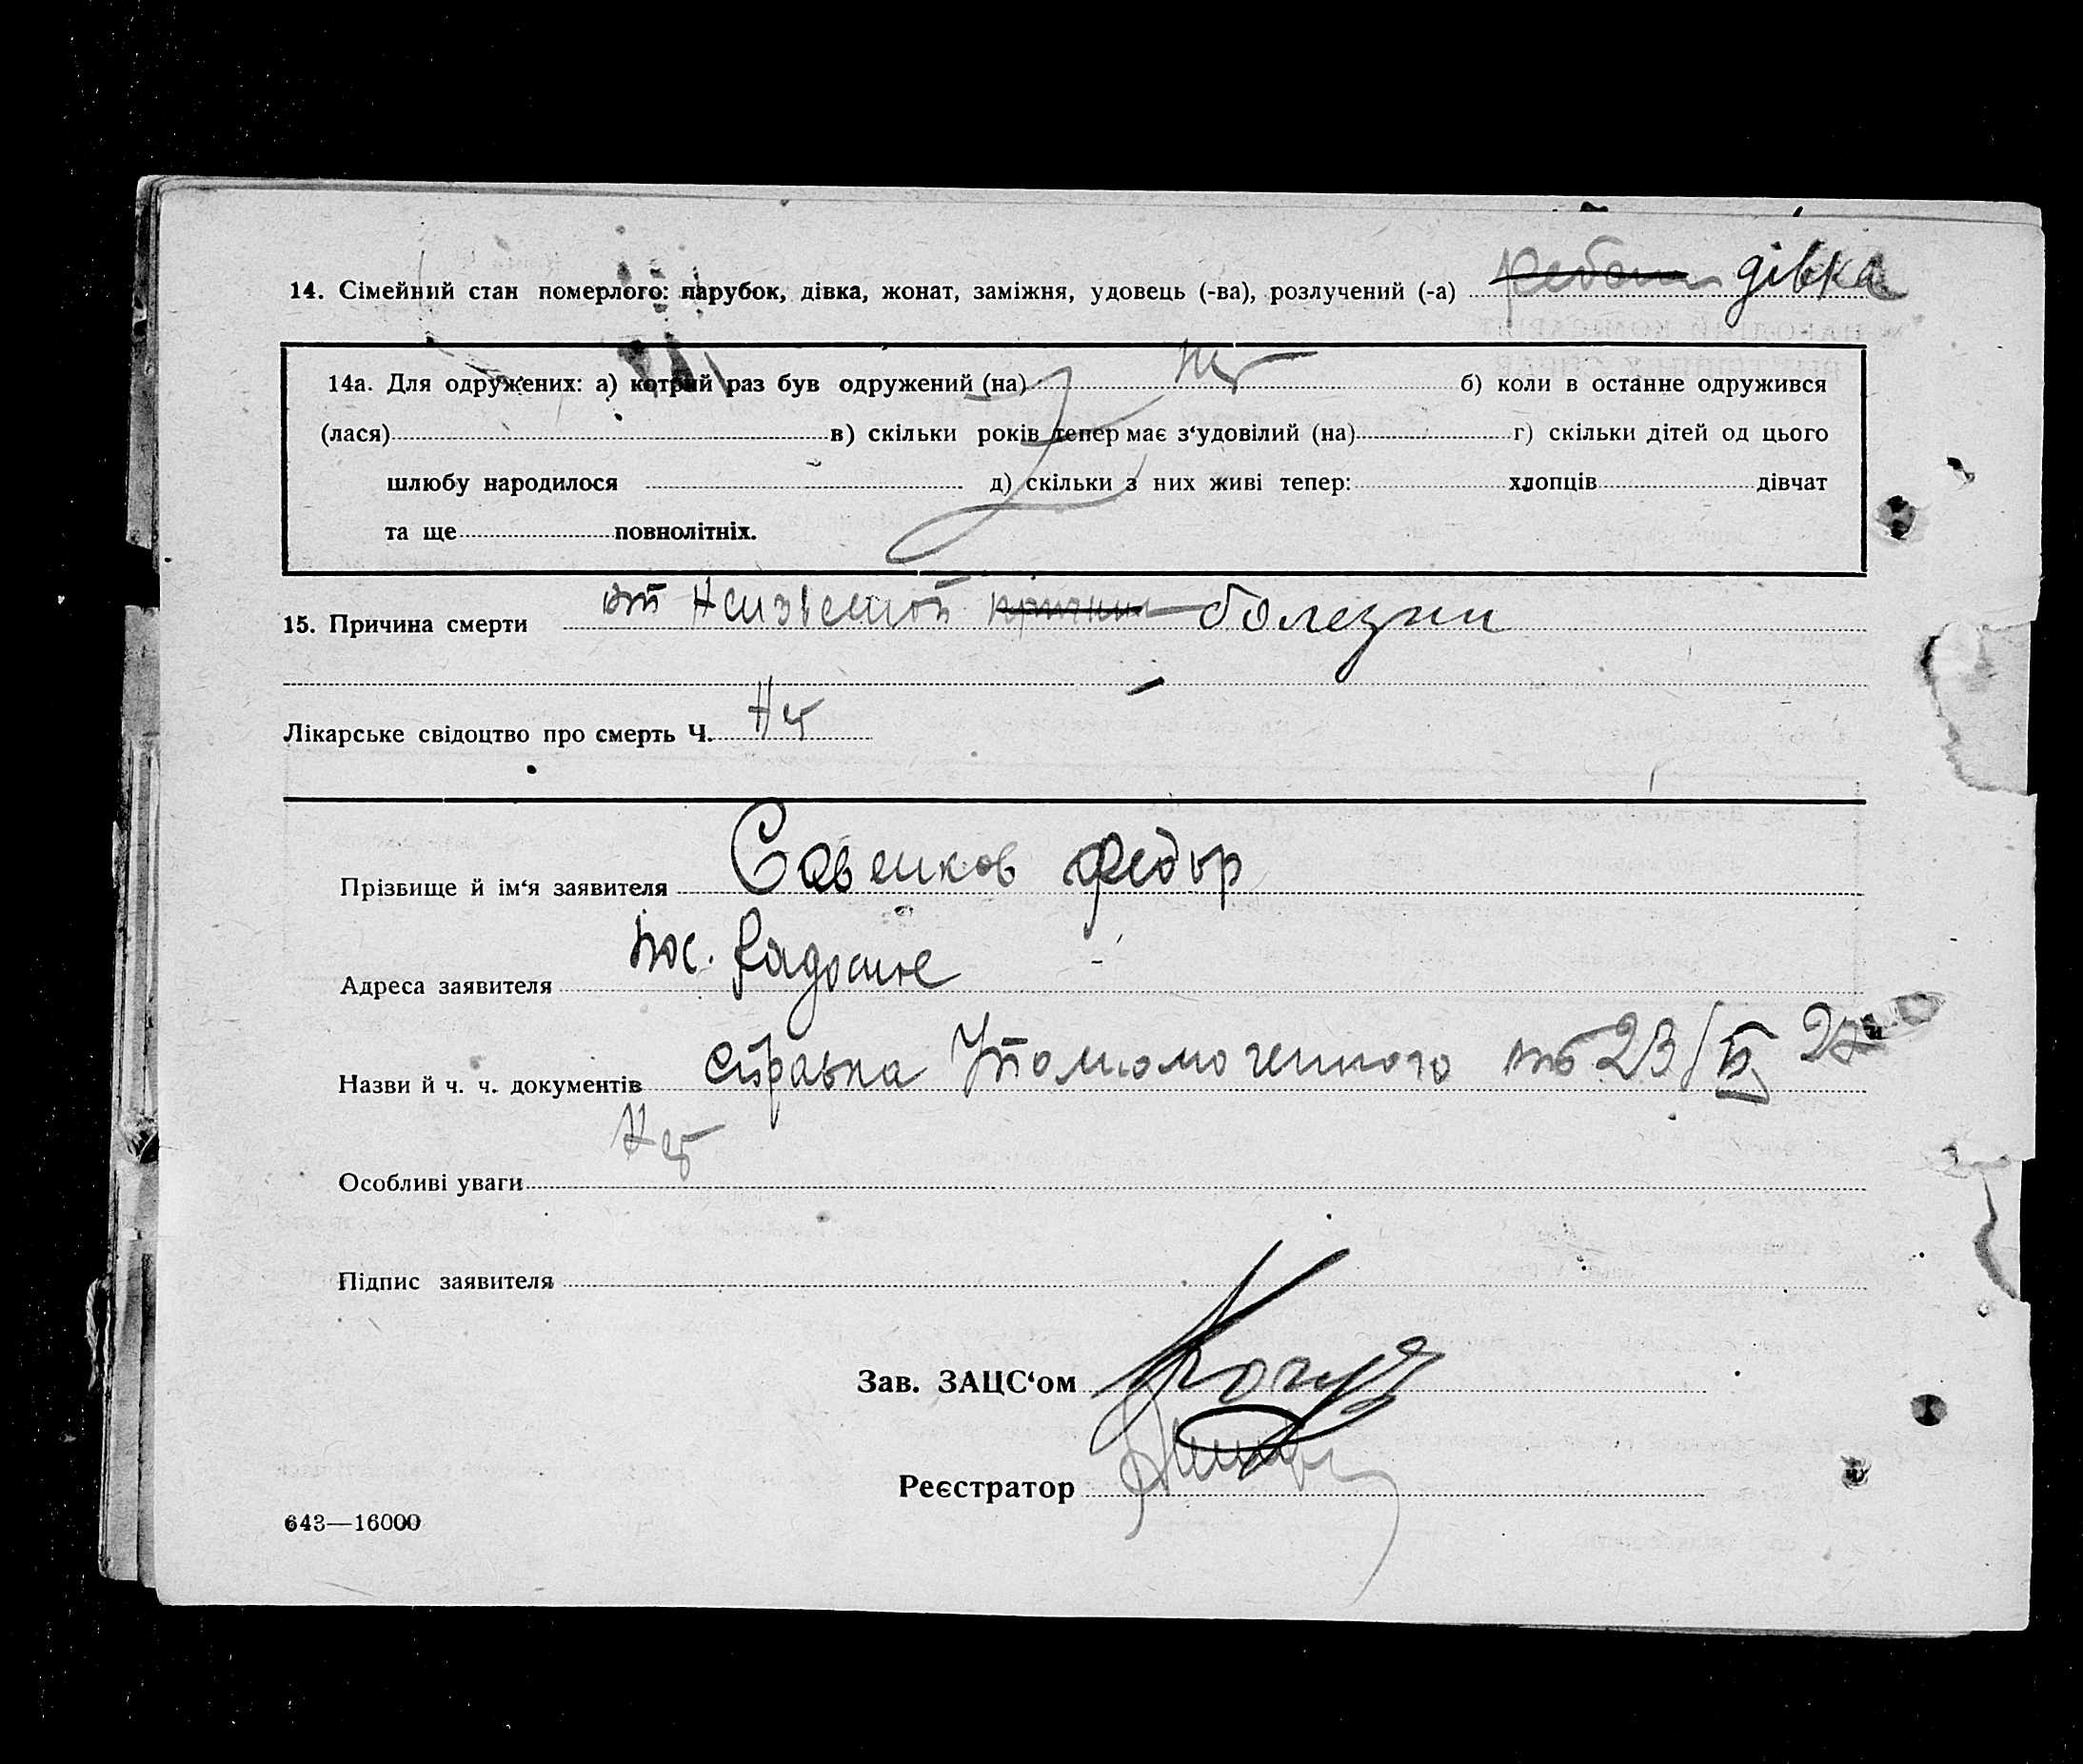 14. Сімейний стан померлого: парубок, дівка, жонат, заміжня, удовець (-ва), розлучений (-а) дівка
14а. Для одружених: а) котрий раз був одружений (на) б) коли в останне одружився
(лася) в) скільки років тепер має з‘удовілий (на) г) скільки дітей од цього
шлюбу народилося д) скільки з них живі тепер: хлопців дівчат
та ще повнолітніх.
15. Причина смерти от неизвесной болезни
Лікарське свідоцтво про смерть Ч. Нет
Прізвище й ім‘я заявителя Савенков Федор
Адреса заявителя пос. Радостне
Назви й ч. ч. документів справка Уполномоченного от 23/IX
Особливі уваги Нет
Підпис заявителя
Зав. ЗАЦС‘ом
Реєстратор
643—16000